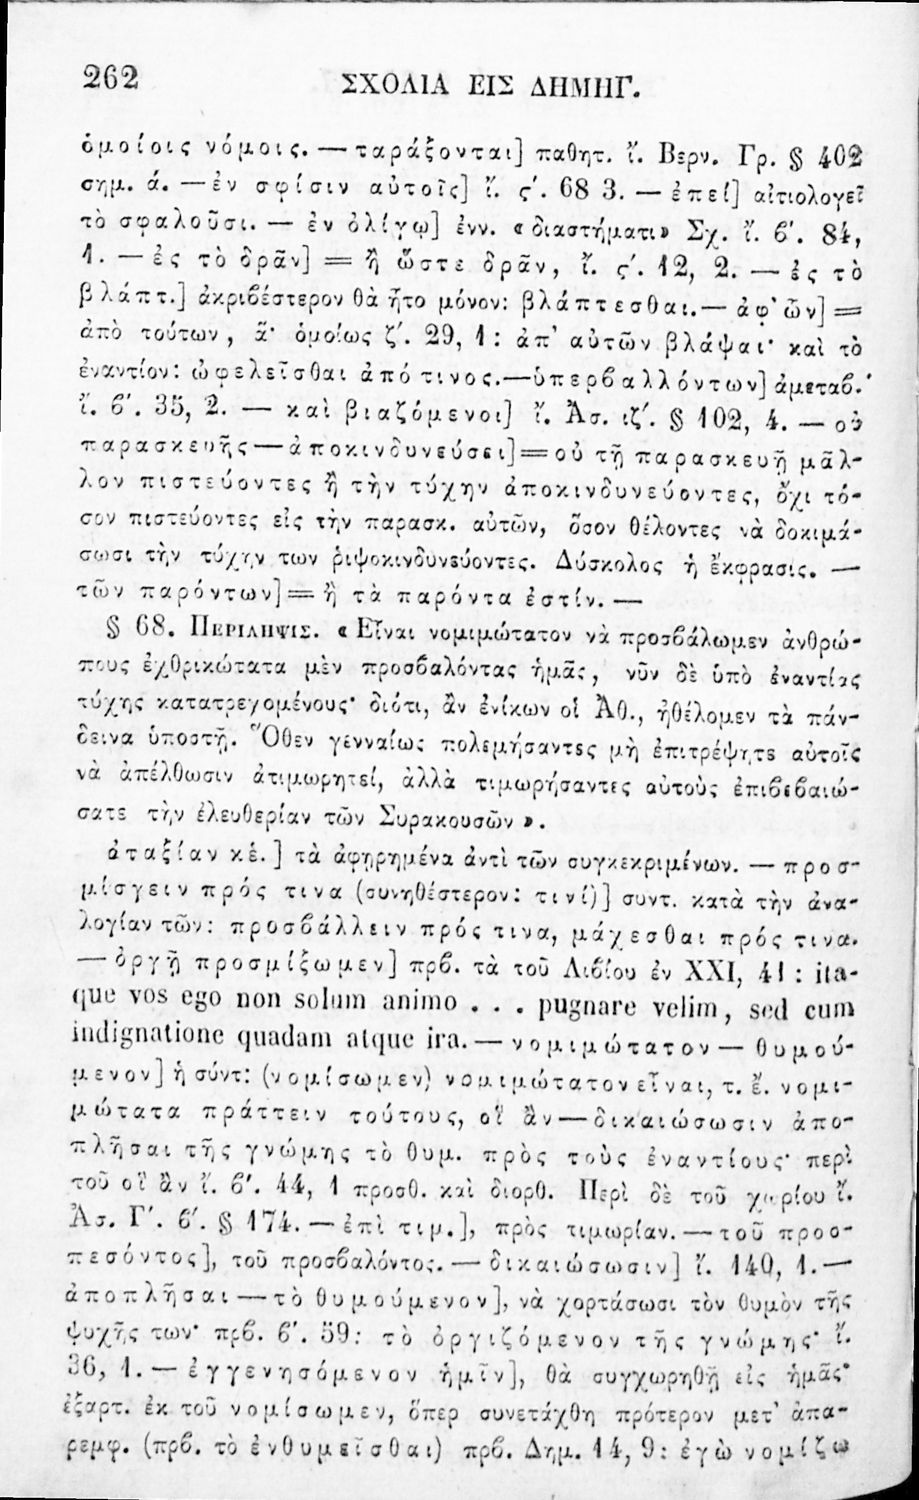 262
ΣΧΟΛΙΑ ΕΙΣ ΔΗΜΗΓ.
ὁμοίοις νόμοις. — ταράξονται] παθητ. ἴ. Βερν. Γρ. § 402
σημ. ά. — ἐν σφίσιν αὐτοῖς] ἴ. ϛ´. 68 3. — ἐπεί] αἰτιολογεῖ
τὸ σφαλοῦσι. — ἐν ὀλίγῳ] ἐνν. «διαστήματι» Σχ. ἴ. β´. 84,
1. — ἐς τὸ δρᾶν] = ἢ ὥστε δρᾶν, ἴ. ϛ´. 12, 2. — ἐς τὸ
βλάπτ.] ἀκριβέστερον θὰ ἦτο μόνον: βλάπτεσθαι. — ἀφ᾽ ὧν] =
ἀπὸ τούτων, ἅ· ὁμοίως ζ´. 29, 1: ἀπ᾽ αὐτῶν βλάψαι· καὶ τὸ
ἐναντίον: ὠφελεῖσθαι ἀπό τινος. — ὑπερβαλλόντων] ἀμεταβ.·
ἴ. β´. 35, 2. — καὶ βιαζόμενοι] ἴ. Ἀσ. ιζ´. § 102, 4. — οὐ
παρασκευῆς — ἀποκινδυνεύσει] = οὐ τῇ παρασκευῇ μᾶλ-
λον πιστεύοντες ἢ τὴν τύχην ἀποκινδυνεύοντες, ὄχι τό-
σον πιστεύοντες εἰς τὴν παρασκ. αὐτῶν, ὅσον θέλοντες νὰ δοκιμά-
σωσι τὴν τύχην των ῥιψοκινδυνεύοντες. Δύσκολος ἡ ἔκφρασις. —
τῶν παρόντων] = ἢ τὰ παρόντα ἐστίν. —
§ 68. ΠΕΡΙΛΗΨΙΣ. «Εἶναι νομιμώτατον νὰ προσβάλωμεν ἀνθρώ-
πους ἐχθρικώτατα μὲν προσβαλόντας ἡμᾶς, νῦν δὲ ὑπὸ ἐναντίας
τύχης κατατρεχομένους· διότι, ἂν ἐνίκων οἱ Ἀθ., ἠθέλομεν τὰ πάν-
δεινα ὑποστῇ. Ὅθεν γενναίως πολεμήσαντες μὴ ἐπιτρέψητε αὐτοῖς
νὰ ἀπέλθωσιν ἀτιμωρητεί, ἀλλὰ τιμωρήσαντες αὐτοὺς ἐπιβεβαιώ-
σατε τὴν ἐλευθερίαν τῶν Συρακουσῶν».
ἀταξίαν κἑ.] τὰ ἀφῃρημένα ἀντὶ τῶν συγκεκριμένων. — προσ-
μίσγειν πρός τινα (συνηθέστερον: τινί)] συντ. κατὰ τὴν ἀνα-
λογίαν τῶν: προσβάλλειν πρός τινα, μάχεσθαι πρός τινα.
— ὀργῇ προσμίξωμεν] πρβ. τὰ τοῦ Λιβίου ἐν XXI, 41: ita-
que vos ego non solum animo . . . pugnare velim, sed cum
indignatione quadam atque ira. — νομιμώτατον — θυμού-
μενον] ἡ σύντ: (νομίσωμεν) νομιμώτατον εἶναι, τ. ἔ. νομι-
μώτατα πράττειν τούτους, οἳ ἂν — δικαιώσωσιν ἀπο-
πλῆσαι τῆς γνώμης τὸ θυμ. πρὸς τοὺς ἐναντίους· περὶ
τοῦ οἳ ἂν ἴ. β´. 44, 1 προσθ. καὶ διορθ. Περὶ δὲ τοῦ χωρίου ἴ.
Ἀσ. Γ´. β´. § 174. — ἐπὶ τιμ.], πρὸς τιμωρίαν. — τοῦ προσ-
πεσόντος], τοῦ προσβαλόντος. — δικαιώσωσιν] ἴ. 140, 1. —
ἀποπλῆσαι — τὸ θυμούμενον], νὰ χορτάσωσι τὸν θυμὸν τῆς
ψυχῆς των· πρβ. β´. 59: τὸ ὀργιζόμενον τῆς γνώμης· ἴ.
36, 1. — ἐγγενησόμενον ἡμῖν], θὰ συγχωρηθῇ εἰς ἡμᾶς·
ἐξαρτ. ἐκ τοῦ νομίσωμεν, ὅπερ συνετάχθη πρότερον μετ᾽ ἀπα-
ρεμφ. (πρβ. τὸ ἐνθυμεῖσθαι) πρβ. Δημ. 14, 9: ἐγὼ νομίζω